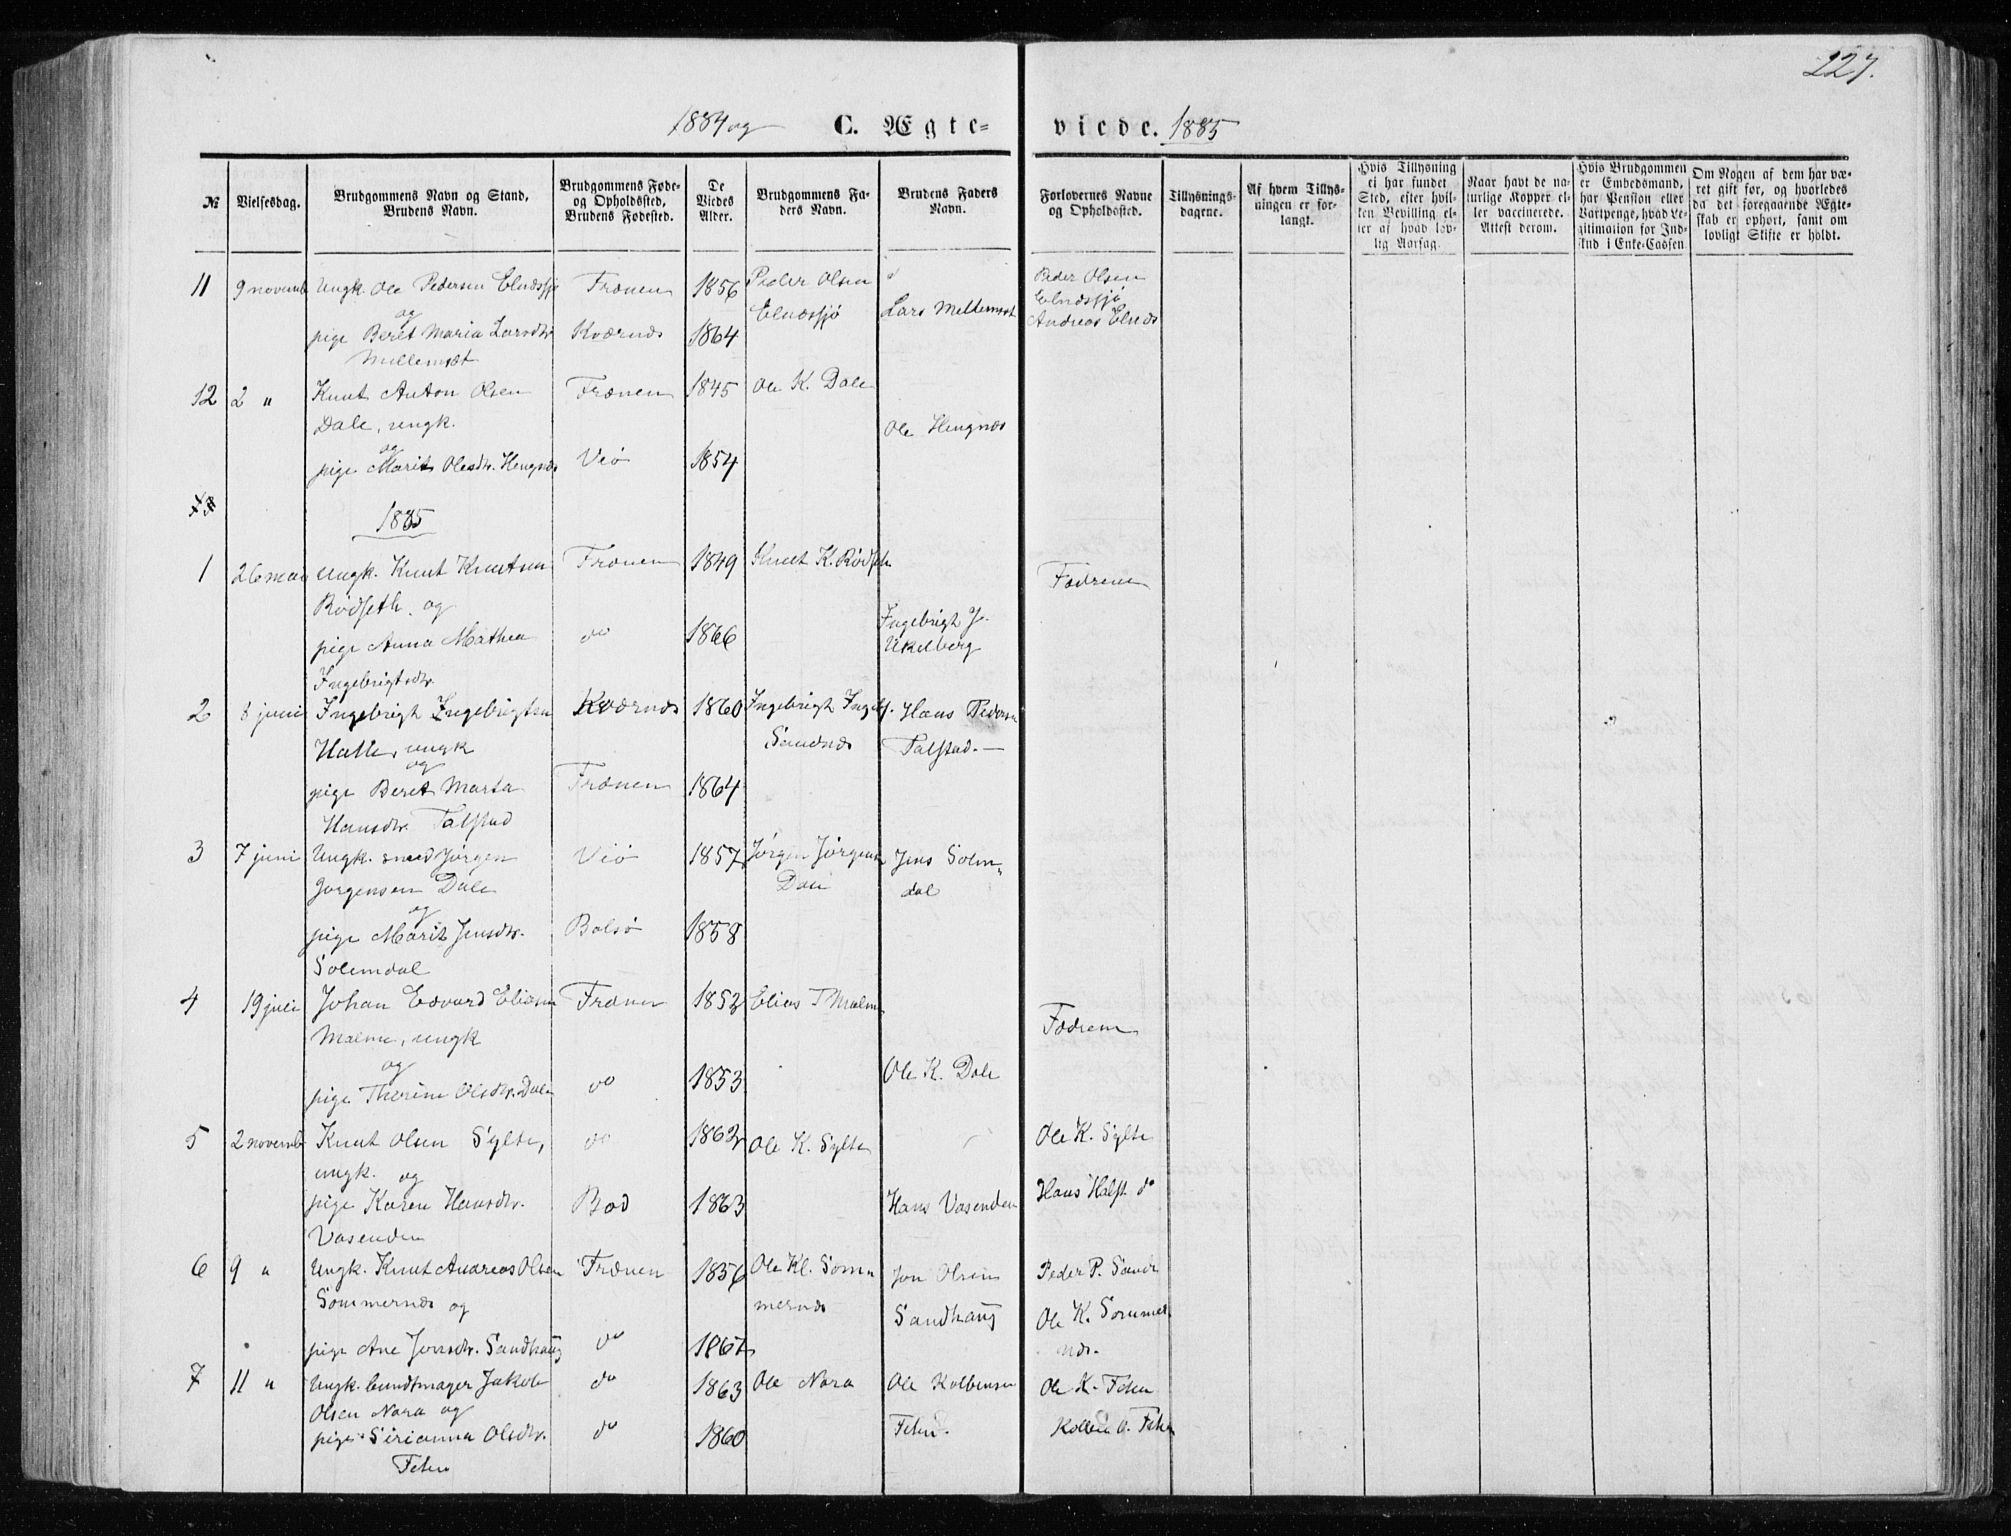 227.
1884 og C. Ægte- viede. 1885
№ Vielsesdag. Brudgommens Navn og Stand, Brudens Navn. Brudgommens Føde- og Opholdssted, Brudens Fødested. De Viedes Alder. Brudgommens Faders Navn. Brudens Faders Navn. Forlovernes Navne og Opholdssted. Tillysnings-dagene. Af hvem Tillys-ningen er for-langt. Hvis Tillysning ei har fundet Sted, efter hvil-ken Bevilling el-ler af hvad lov-lig Aarsag. Naar havt de na-turlige Kopper el-ler vaccinerede. Attest derom. Hvis Brudgommen er Embedsmand, har Pension eller Vartpenge, hvad Le-gitimation for Ind-skud i Enke-Cassen Om Nogen af dem har væ-ret gift før, og hvorledes da det foregaaende Ægte-skab er ophørt, samt om lovligt Skifte er holdt.
11 9 novemb Ungk. Ole Pedersen Elnæssjø Frænen 1856 Peder Olsen " Peder Olsen
og Elnæssjø Lars Mellemsæt Elnæssjø
pige Beret Maria Larsdtr Kværnæs 1864 Andreas Elnæs
Mellemsæt
12 2 " Knut Anton Olsen Frænen 1845 Ole K. Dale
Dale, ungk. Ole Hengnæs
og
pige Marit Olesdtr. Hengnæs Veø 1854
1885
1 26 mai Ungk. Knut Knutsen Frænen 1849 Knut K. Rødseth Fædrene
Rødseth og
pige Anna Mathea do 1866 Ingebrigt J. Ukelberg
Ingebrigtsdtr.
2 8 juni Ingebrigt Ingebrigtsen Kværnæs 1860 Ingebrigt Ingebr. Hans Pedersen
Halle, ungk Sandnæs Talstad. —
og
pige Beret Marta Frænen 1864
Hansdtr. Talstad
3 7 juni Ungk. smed Jørgen Veø 1857 Jørgen Jørgensen Jens Solem-
Jørgensen Dale Dale dal
og
pige Marit Jensdtr. Bolsø 1858
Solemdal
4 19 juli Johan Edvard Eliasen Frænen 1852 Elias T Malme
Malme, ungk Fædrene
og
pige Therine Olsdtr. Dale do 1853 Ole K. Dale
5 2 novemb Knut Olsen Sylte, do 1862 Ole K. Sylte Ole K. Sylte
ungk. og
pige Karen Hansdtr. Bod 1863 Hans Vasenden Hans Halst. do
Vasenden
6 9 " Ungk. Knut Andreas Olsen Frænen 1856 Ole Kl. Som- Jon Olsen Peder P. Sande
Sommernæs og mernæs Sandhaug Ole K. Sommer
pige Ane Jonsdtr. Sandhaug do 1867 næs.
7 11 " Ungk. bundtmager Jakob do 1863 Ole Nora Ole Kolbensen Ole K. Feten
Olsen Nora og
pige Sirianna Olsdtr. do 1860 Feten. Kolben O. Feten
Feten